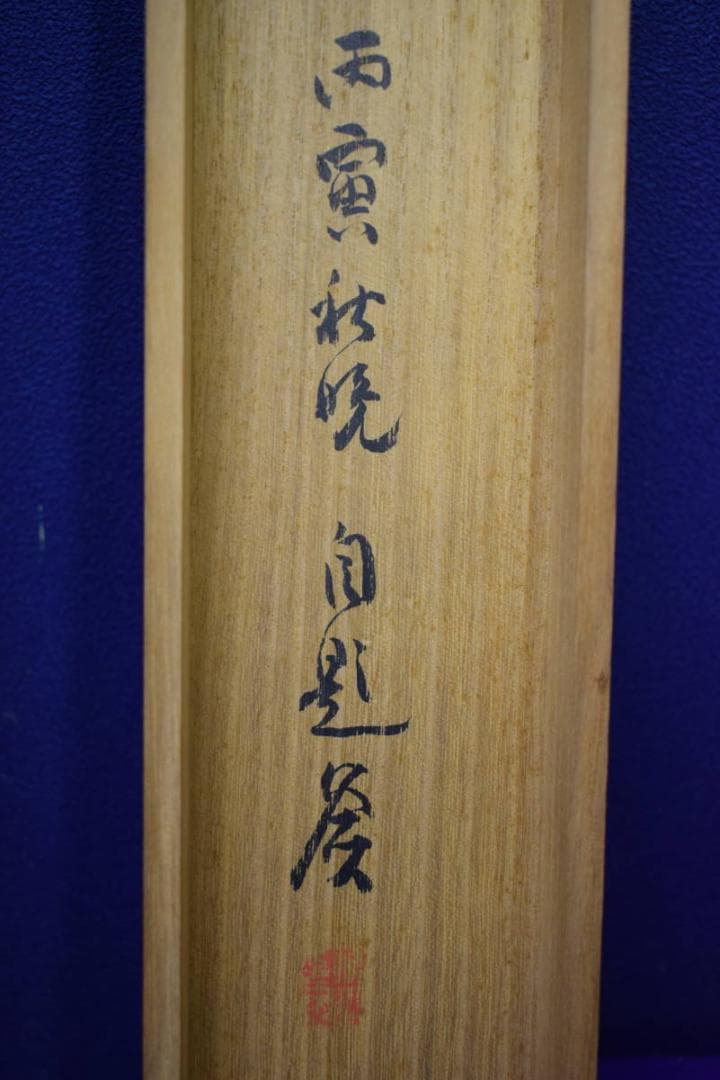 丙寅秋晩 自題